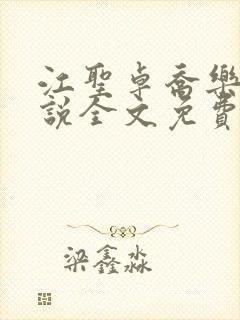 江聖卓喬樂
說全文免費
梁鑫淼